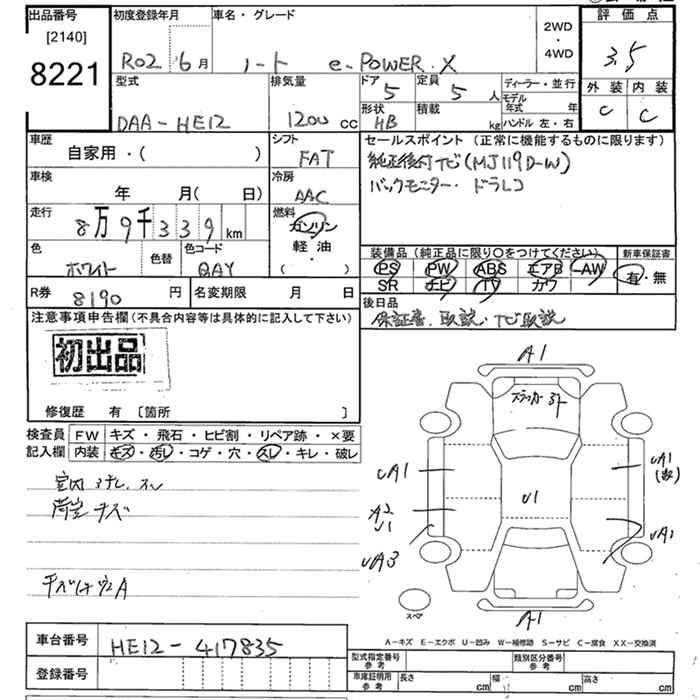 出品番号 [2140] 8221
初度登録年月 R02 6月
車名・グレード ノート e-POWER X
2WD・4WD
評価点 3.5
外装 C 内装 C
型式 DAA-HE12
排気量 1200cc
ドア 5 定員 5人
形状 HB 積載 kg
ディーラー・並行
モデル年式 年
ハンドル 左・右
車歴 自家用・( )
シフト FAT
車検 年 月( 日)
冷房 AAC
走行 8万9千339km
燃料 ガソリン 軽油 ( )
色 ホワイト 色替 色コード QAY
R券 8190円 名変期限 月 日
セールスポイント (正常に機能するものに限ります)
純正後付ナビ(MJ119D-W)
バックモニター・ドラレコ
装備品 (純正品に限り○をつけてください) 新車保証書
PS PW ABS エアB AW 有・無
SR ナビ TV カワ
後日品
保証書、取説・ナビ取説
注意事項申告欄(不具合内容等は具体的に記入して下さい)
初出品
修復歴 有 [箇所 ]
検査員記入欄 FW キズ・飛石・ヒビ割・リペア跡・×要
内装 キズ・汚レ・コゲ・穴・スレ・キレ・破レ
荷室 キズ
A1
UA1
U1
UA1
A2
U1
UA3
A1
スペア
A-キズ E-エクボ U-凹み W-補修跡 S-サビ C-腐食 XX-交換済
車台番号 HE12-417835
登録番号
型式指定番号 参考 類別区分番号 参考
車庫証明用 参考 長さ cm 幅 cm 高さ cm